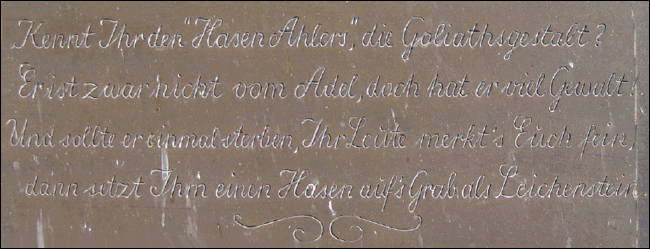 Kennt Ihr den "Hasen Ahlors", die Goliathsgestalt?
Er ist zwar nicht vom Adel, doch hat er viel Gewalt!
Und sollte er einmal sterben, Ihr Leute merkt's Euch fein,
dann setzt Ihm einen Hasen auf's Grab als Leichenstein